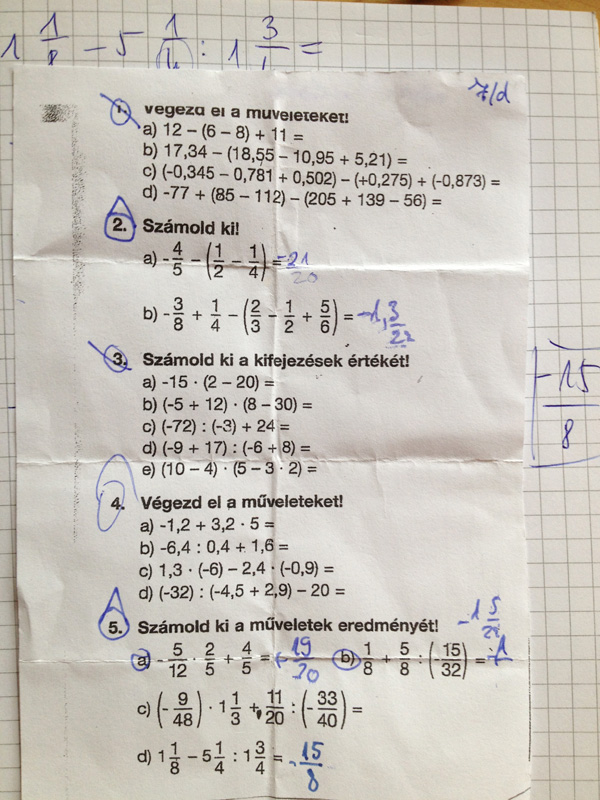 1 1/8 − 5 1/4 : 1 3/4 =
7/d
1. Végezd el a műveleteket!
a) 12 – (6 – 8) + 11 =
b) 17,34 – (18,55 – 10,95 + 5,21) =
c) (-0,345 – 0,781 + 0,502) – (+0,275) + (-0,873) =
d) -77 + (85 – 112) – (205 + 139 – 56) =
2. Számold ki!
a) -4/5 – (1/2 – 1/4) = -21/20
b) -3/8 + 1/4 – (2/3 – 1/2 + 5/6) = -1,3/22
3. Számold ki a kifejezések értékét!
a) -15 · (2 – 20) =
b) (-5 + 12) · (8 – 30) =
c) (-72) : (-3) + 24 =
d) (-9 + 17) : (-6 + 8) =
e) (10 – 4) · (5 – 3 · 2) =
-15/8
4. Végezd el a műveleteket!
a) -1,2 + 3,2 · 5 =
b) -6,4 : 0,4 + 1,6 =
c) 1,3 · (-6) – 2,4 · (-0,9) =
d) (-32) : (-4,5 + 2,9) – 20 =
5. Számold ki a műveletek eredményét!
a) -5/12 · 2/5 + 4/5 = 19/30 b) 1/8 + 5/8 : (-15/32) = -1 5/24
c) (-9/48) · 1 1/3 + 11/20 : (-33/40) =
d) 1 1/8 – 5 1/4 : 1 3/4 = -15/8